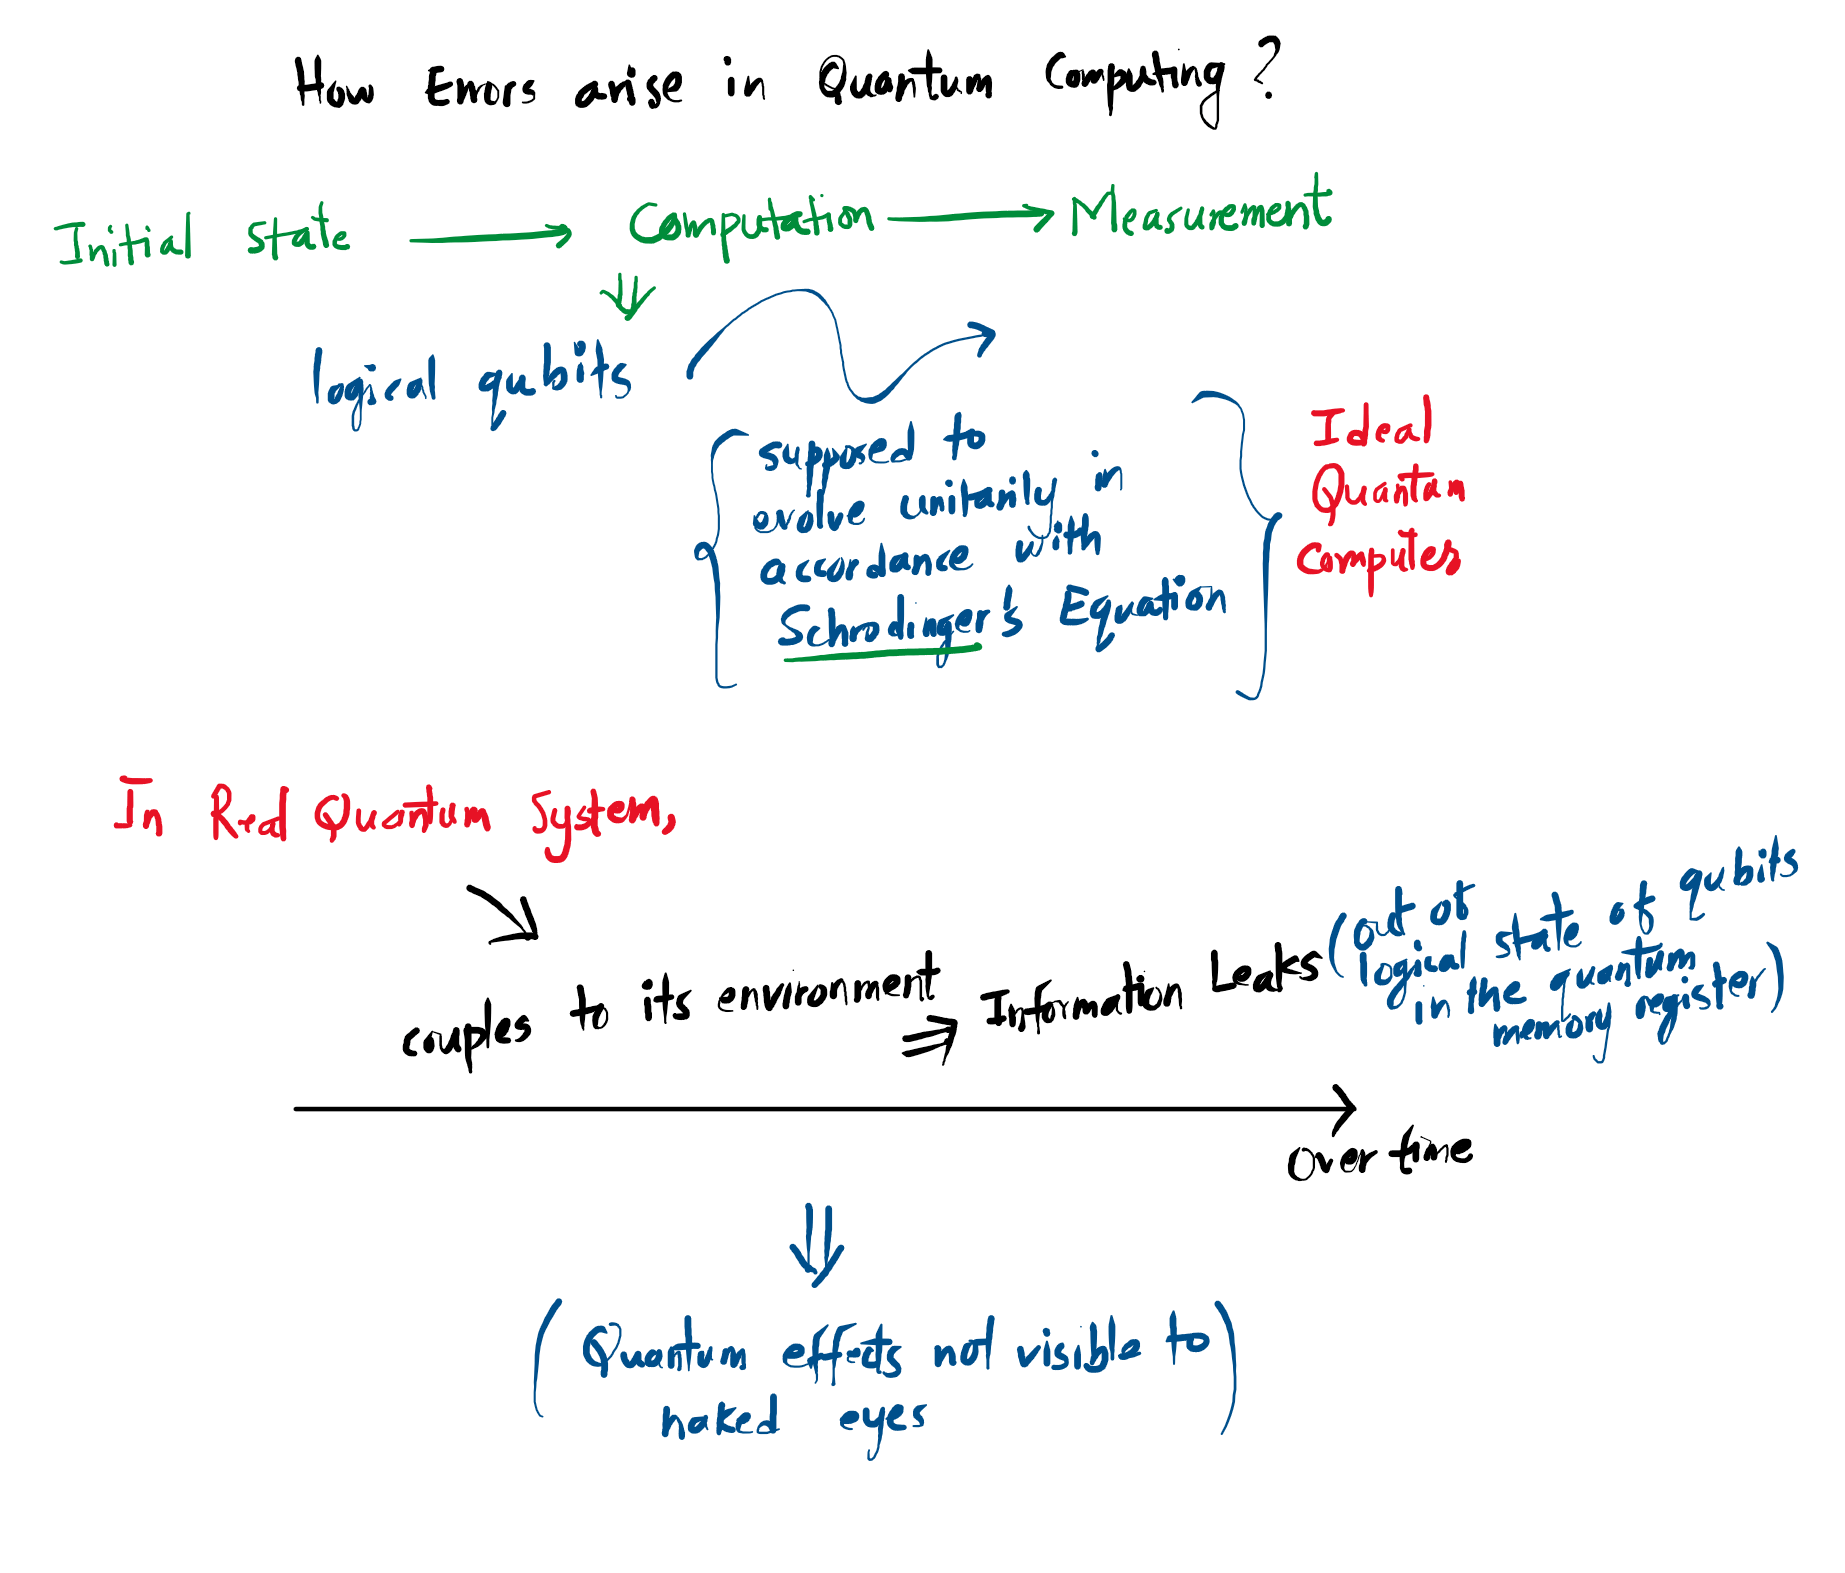 How Errors arise in Quantum Computing?
Initial state → Computation → Measurement
⇓
logical qubits
supposed to
evolve unitarily in
accordance with
Schrodinger's Equation
Ideal
Quantum
Computers
In Real Quantum System,
couples to its environment ⇒ Information Leaks (out of
logical state of qubits
in the quantum
memory register)
Over time
⇓
(Quantum effects not visible to
naked eyes)